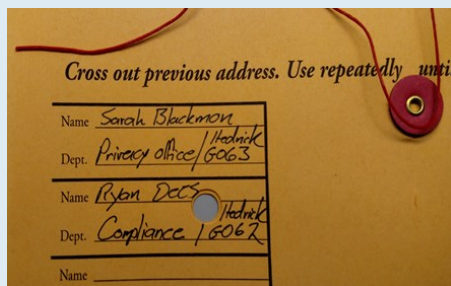 Cross out previous address. Use repeatedly unti
Name Sarah Blackmon
Dept. Privacy office/Hedrick G063
Name Ryan Dees
Dept. Compliance/Hedrick G062
Name